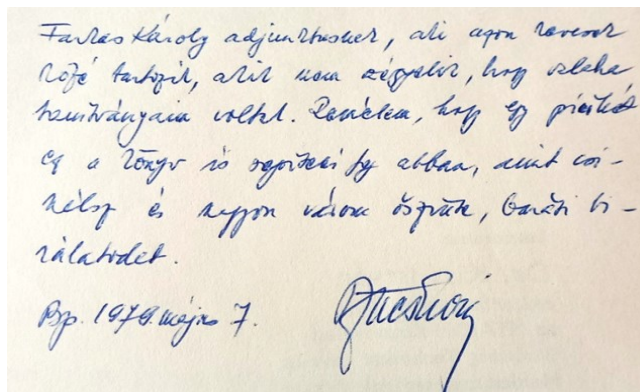 Farkas Károly adjunktusnak, aki azon kevesek
közé tartozik, akik nem szégyellik, hogy valaha
tanítványaim voltak. Remélem, hogy egy picikét
ez a könyv is segíteni fog abban, amit csi-
nálsz és nagyon várom őszinte, baráti bí-
rálatodat.
Bp. 1979. május 7.